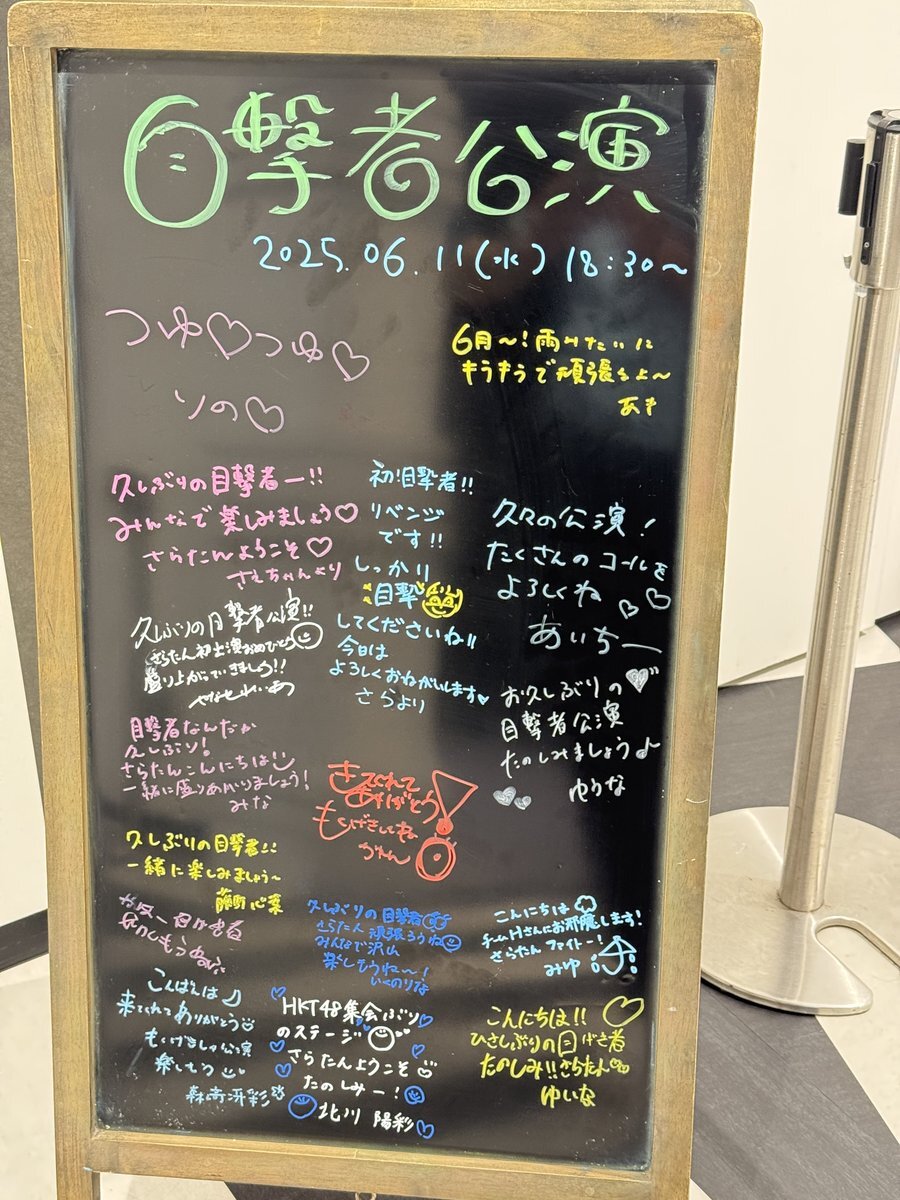 目撃者公演
2025.06.11(水) 18:30~
つゆ♡つゆ♡
りの♡
6月~!雨みたいに
キラキラで頑張るよ~
あき
久しぶりの目撃者ー!!
みんなで楽しみましょう♡
さらたんようこそ♡
さえちゃんより
初!目撃者!!
リベンジ
です!!
しっかり
目撃
してくださいね!!
今日は
よろしくおねがいします
さらより
久々の公演!
たくさんのコールを
よろしくね
あいちー
久しぶりの目撃者公演!!
さらたん初出演おめでとう
盛り上がっていきましょう!!
お久しぶりの
目撃者公演
たのしみましょう♪
ゆりな
目撃者なんだか
久しぶり!
さらたんこんにちは
一緒に盛りあがりましょう!
みな
きてくれて
ありがとう
もくげきしてね
久しぶりの目撃者!!
一緒に楽しみましょう~
藤野心葉
久しぶりの目撃者
さらたん頑張ろうね
みんなで沢山
楽しもうね~!
いくのりな
こんにちは
チームHさんにお邪魔します!
さらたんファイトー!
みゆ
こんばんは
来てくれてありがとう
もくげきしゃ公演
楽しもう
森﨑冴彩
HKT48集会ぶり
のステージ
さらたんようこそ
たのしみー!
北川陽彩
こんにちは!!
ひさしぶりの目げき者
たのしみ!!さらたん
ゆいな